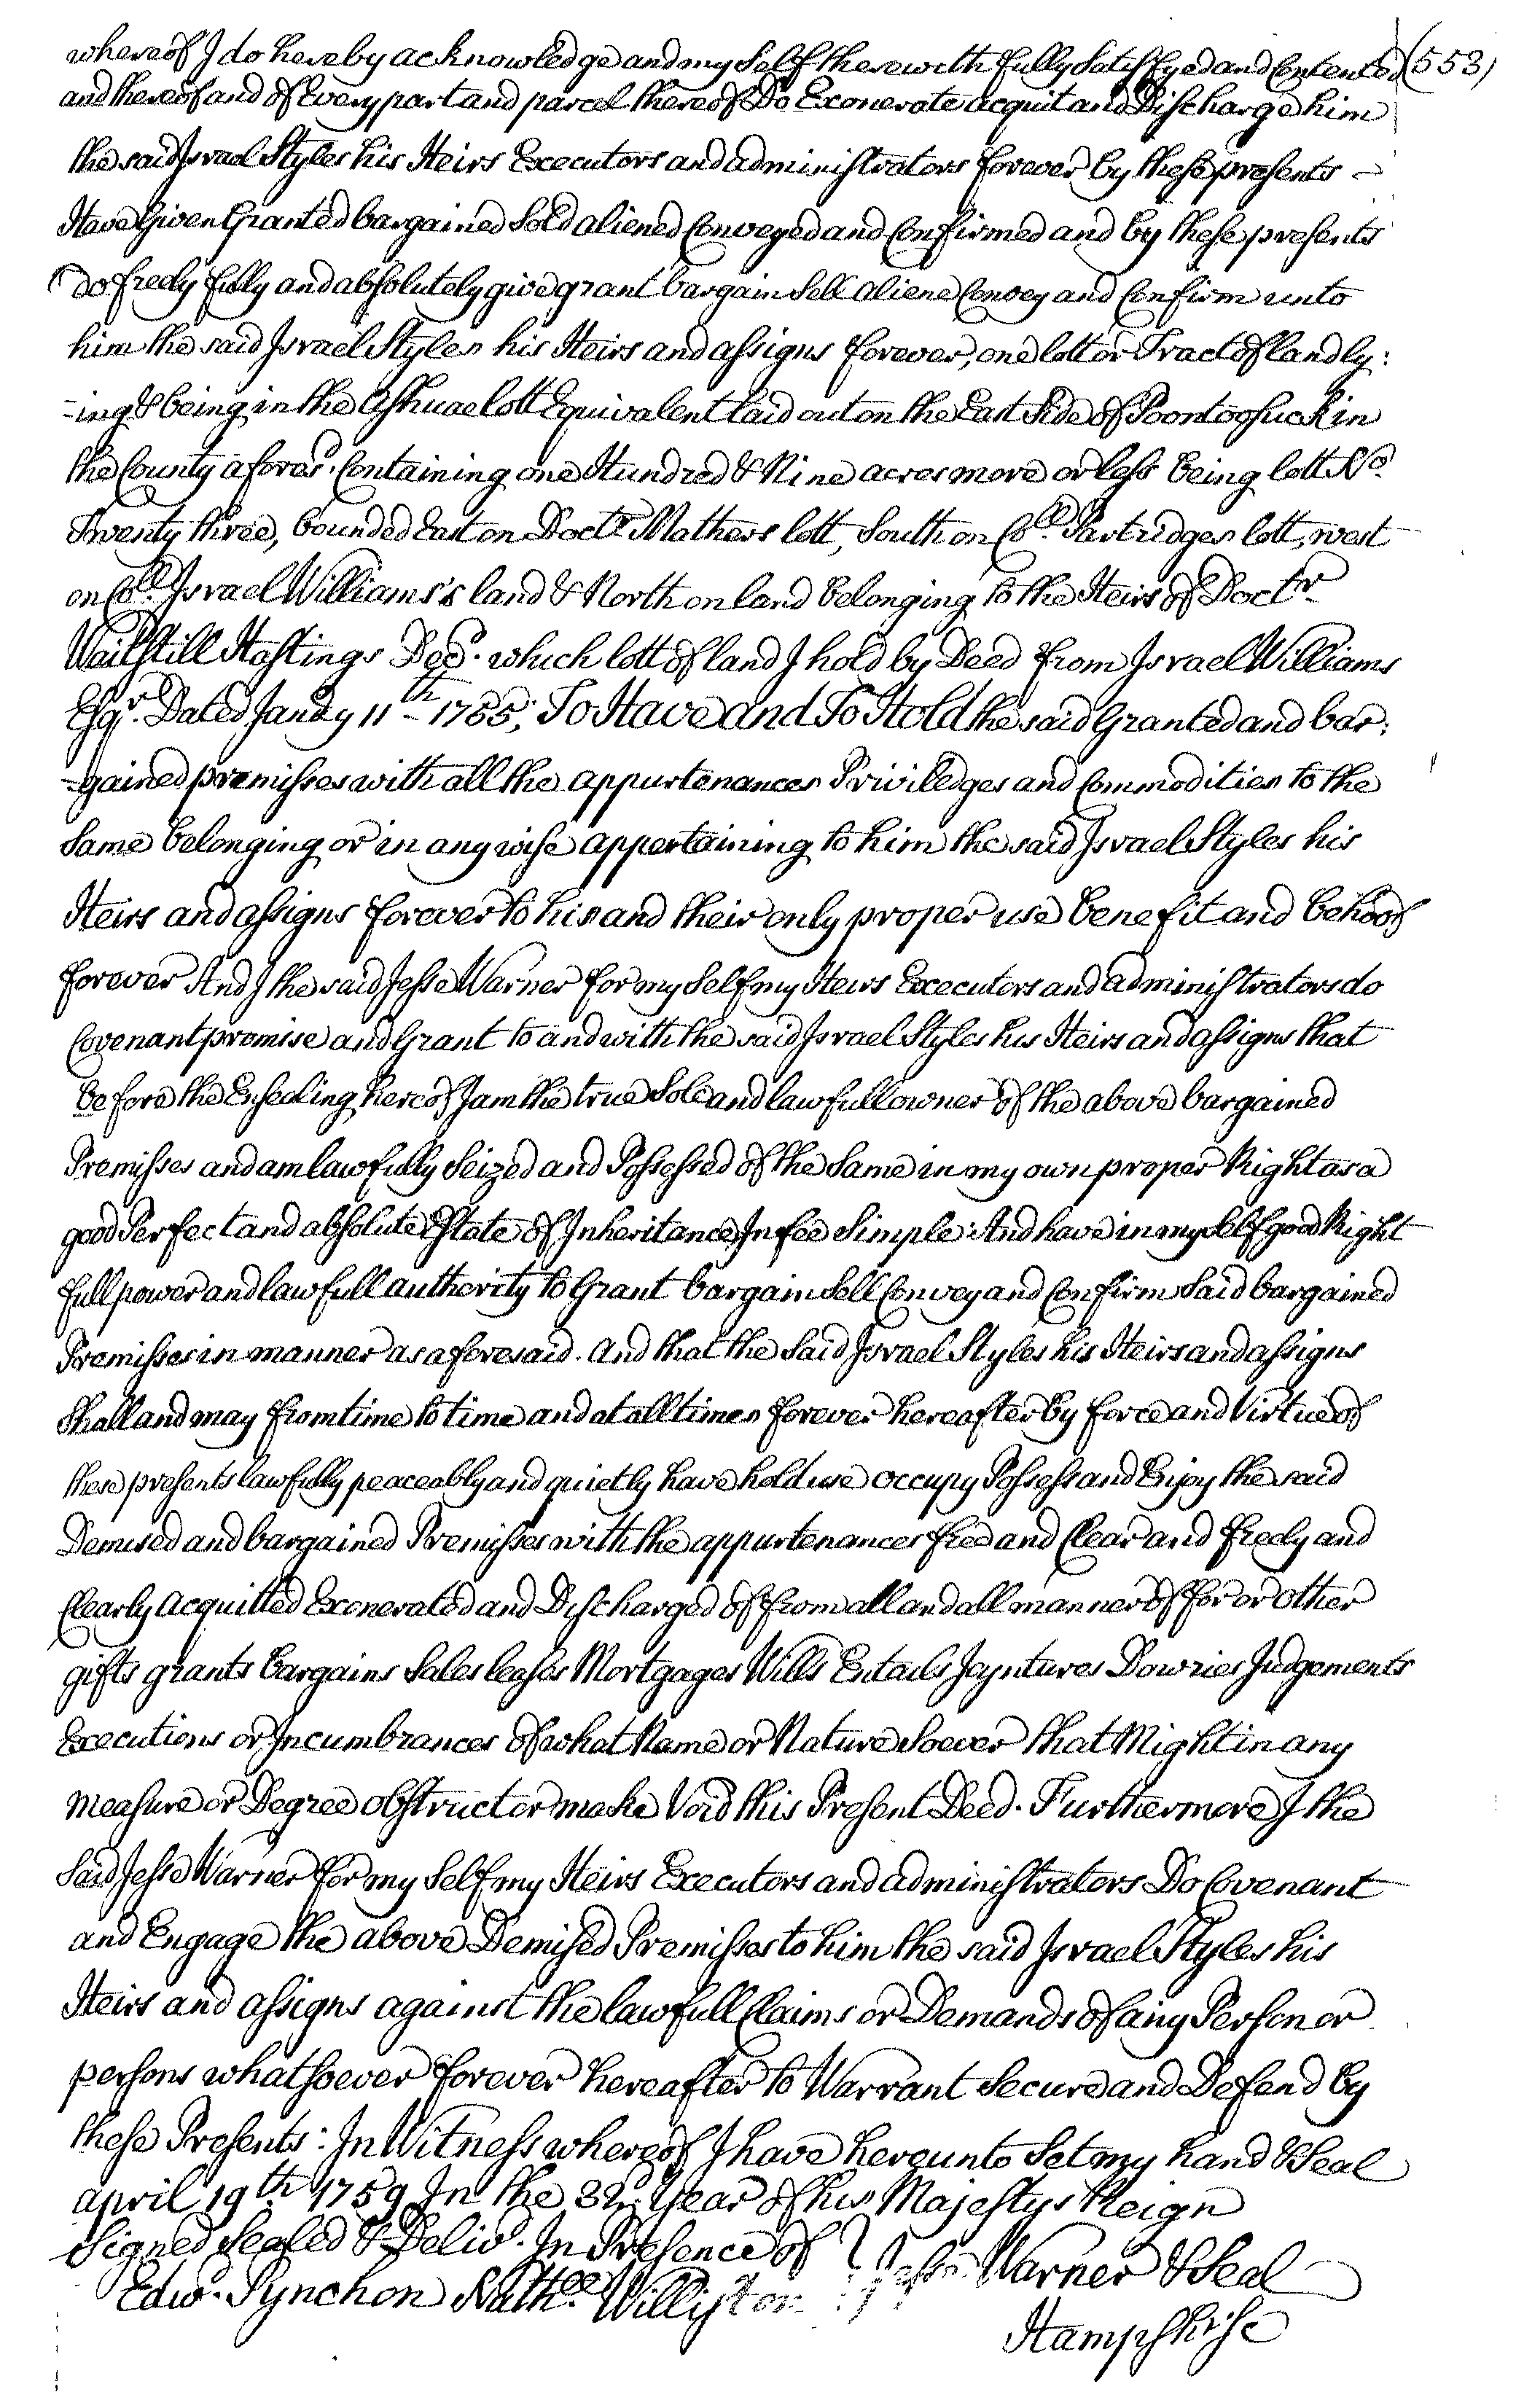 whereof I do hereby acknowledge and my Self therewith fully Satisfyed and Contented (553)
and thereof and of Every part and parcel thereof Do Exonerate acquit and Discharge him
the said Israel Styles his Heirs Executors and administrators forever by these presents –
Have Given Granted bargained Sold aliened Conveyed and Confirmed and by these presents
do freely fully and absolutely give grant bargain Sell aliene Convey and Confirm unto
him the said Israel Styles his Heirs and assigns forever, one lott or Tract of land ly:
-ing & being in the Ashuaelott Equivalent laid out on the East Side of Poontoosuck in
the County aforesd. Containing one Hundred & Nine acres more or less being lott No.
Twenty three, bounded East on Doctr. Mathers lott, South on Coll. Partridges lott, west
on Coll. Israel Williams's land & North on land belonging to the Heirs of Doctr.
Waitstill Hastings Decd. which lott of land I hold by Deed from Israel Williams
Esqr. Dated Janay 11th – 1755; To Have and To Hold the said Granted and bar:
-gained premisses with all the appurtenances Priviledges and Commodities to the
Same belonging or in any wise appertaining to him the said Israel Styles his
Heirs and assigns forever to his and their only proper use benefit and behoof
forever And I the said Jesse Warner for my Self my Heirs Executors and administrators do
Covenant promise and Grant to and with the said Israel Styles his Heirs and assigns that
before the Ensealing hereof I am the true Sole and lawfull owner of the above bargained
Premisses and am lawfully Seized and Possessed of the Same in my own proper Right as a
good Perfect and absolute Estate of Inheritance In fee Simple And have in my Self good Right
full power and lawfull authority to Grant bargain Sell Convey and Confirm Said bargained
Premisses in manner as aforesaid. And that the Said Israel Styles his Heirs and assigns
Shall and may from time to time and at all times forever hereafter by force and Virtue of
these presents lawfully peaceably and quietly have hold use occupy Possess and Enjoy the said
Demised and bargained Premisses with the appurtenances free and Clear and freely and
Clearly Acquitted Exonerated and Discharged of from all and all manner of for or other
gifts grants bargains Sales leases Mortgages Wills Entails Joyntures Dowries Judgements
Executions or Incumbrances of what Name or Nature Soever that Might in any
measure or Degree obstruct or make Void this Present Deed. Furthermore I the
Said Jesse Warner for my Self my Heirs Executors and administrators Do Covenant
and Engage the above Demised Premisses to him the said Israel Styles his
Heirs and assigns against the lawfull Claims or Demands of any Person or
persons whatsoever forever hereafter to Warrant Secure and Defend by
these Presents: In Witness whereof I have hereunto Set my hand & Seal
april 19th 1759 In the 32nd. Year of his Majestys Reign
Signed Sealed & Delivd. In Presence of } Jesse Warner & Seal
Edwd. Pynchon Nathll. Williston
Hampshire